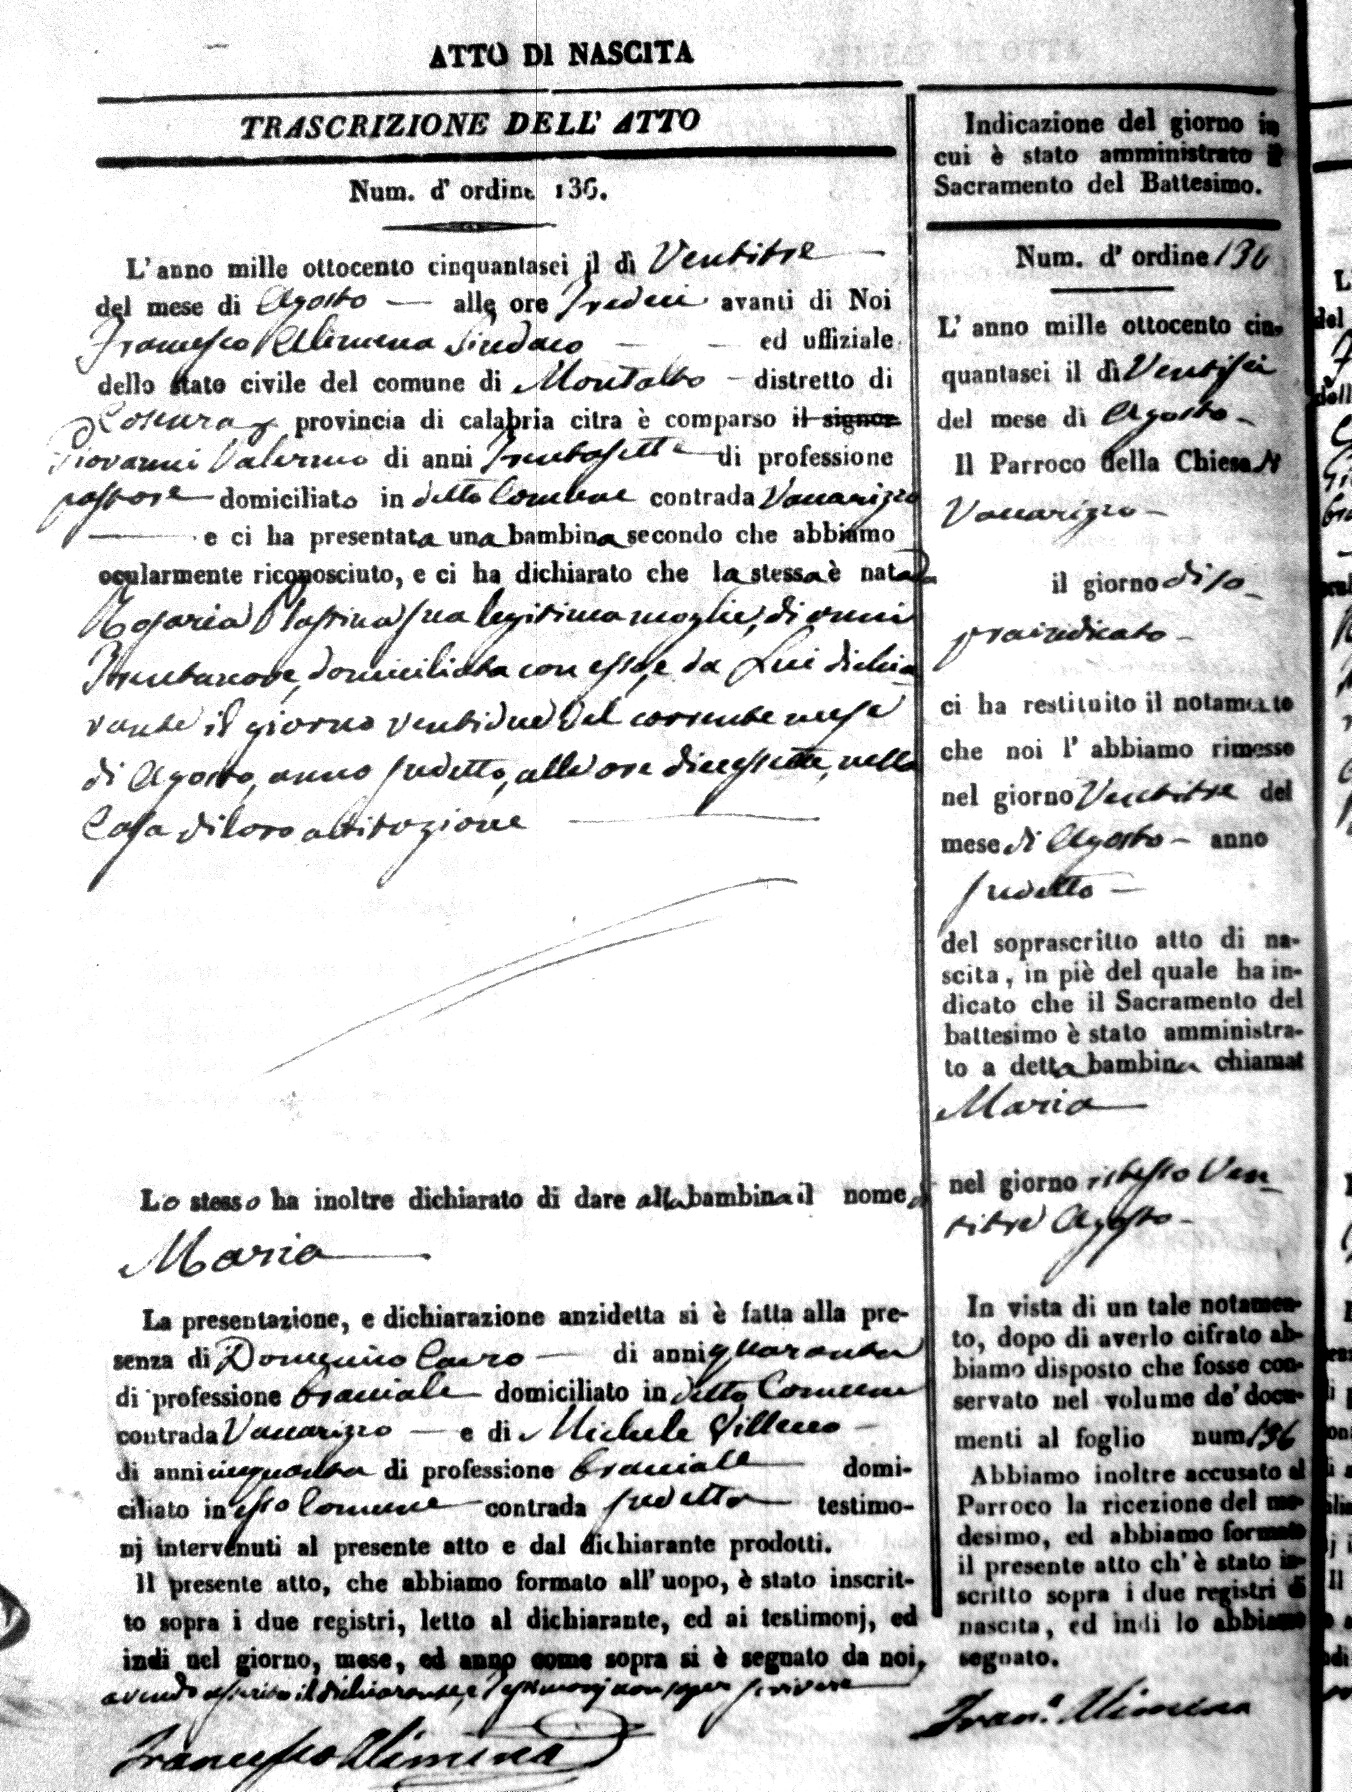 ATTO DI NASCITA
TRASCRIZIONE DELL' ATTO
Num. d' ordine 136.
L' anno mille ottocento cinquantasei il dì Ventitre
del mese di Agosto alle ore Tredici avanti di Noi
Francesco Alimena Sindaco ed uffiziale
dello stato civile del comune di Montalto distretto di
Cosenza provincia di calabria citra è comparso il signor
Giovanni Valermo di anni Trentasette di professione
pastore domiciliato in detto Comune contrada Vaccarizzo
e ci ha presentata una bambina secondo che abbiamo
ocularmente riconosciuto, e ci ha dichiarato che la stessa è nata da
Rosaria Plastina sua legitima moglie, di anni
Trentanove, domiciliata con esso, e da Lui dichia
rante il giorno ventidue del corrente mese
di Agosto, anno sudetto, alle ore diecessette, nella
Casa di loro abitazione
Lo stesso ha inoltre dichiarato di dare alla bambina il nome di
Maria
La presentazione, e dichiarazione anzidetta si è fatta alla pre-
senza di Domenico Cairo di anni quaranta
di professione braciale domiciliato in detto Comune
contrada Vaccarizzo e di Michele
di anni cinquanta di professione braciale domi-
ciliato in esso Comune contrada sudetta testimo-
nj intervenuti al presente atto e dal dichiarante prodotti.
Il presente atto, che abbiamo formato all' uopo, è stato inscrit-
to sopra i due registri, letto al dichiarante, ed ai testimonj, ed
indi nel giorno, mese, ed anno come sopra si è segnato da noi,
avendo asserito il dichiarante, e Testimonj non saper scrivere
Francesco Alimena
Indicazione del giorno in
cui è stato amministrato il
Sacramento del Battesimo.
Num. d' ordine 136
L' anno mille ottocento cin-
quantasei il dì Ventisei
del mese di Agosto
Il Parroco della Chiesa di
Vaccarizzo
il giorno di so
praindicato
ci ha restituito il notamento
che noi l' abbiamo rimesso
nel giorno Ventitre del
mese di Agosto anno
sudetto
del soprascritto atto di na-
scita, in piè del quale ha in-
dicato che il Sacramento del
battesimo è stato amministra-
to a detta bambina chiamat
Maria
nel giorno istesso Ven
titre Agosto
In vista di un tale notamen-
to, dopo di averlo cifrato ab-
biamo disposto che fosse con-
servato nel volume de' docu-
menti al foglio num. 136
Abbiamo inoltre accusato al
Parroco la ricezione del me-
desimo, ed abbiamo formato
il presente atto ch' è stato in-
scritto sopra i due registri di
nascita, ed indi lo abbiamo
segnato.
Fran.º Alimena